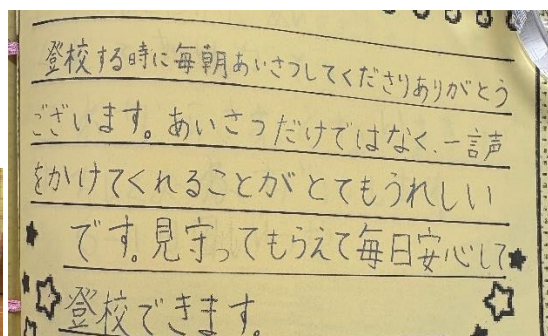 登校する時に毎朝あいさつしてくださりありがとう
ございます。あいさつだけではなく、一言声
をかけてくれることがとてもうれしい
です。見守ってもらえて毎日安心して
登校できます。